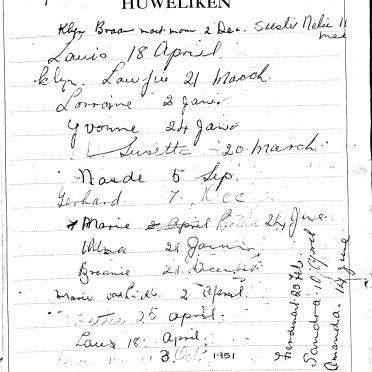 HUWELIKEN
Klyn Braam 2 Dec. Susie Nelie 11
Mei
Louis 18 April.
klyn. Loujie 21 March.
Lorraine 2 Janu
Yvonne 24 Janu
Susette 20 March.
Naude 5 Sep.
Gerhard. 7. Dec
Marie 2 April Botha 24 June
Wilma 21 Januarie
Braanie 21. Desember
Marie 2 April
25 april.
Louis 18. April.
3 Oct 1951
Ferdinant 20 Feb.
Sandra. 10. April
Amanda. 14 June